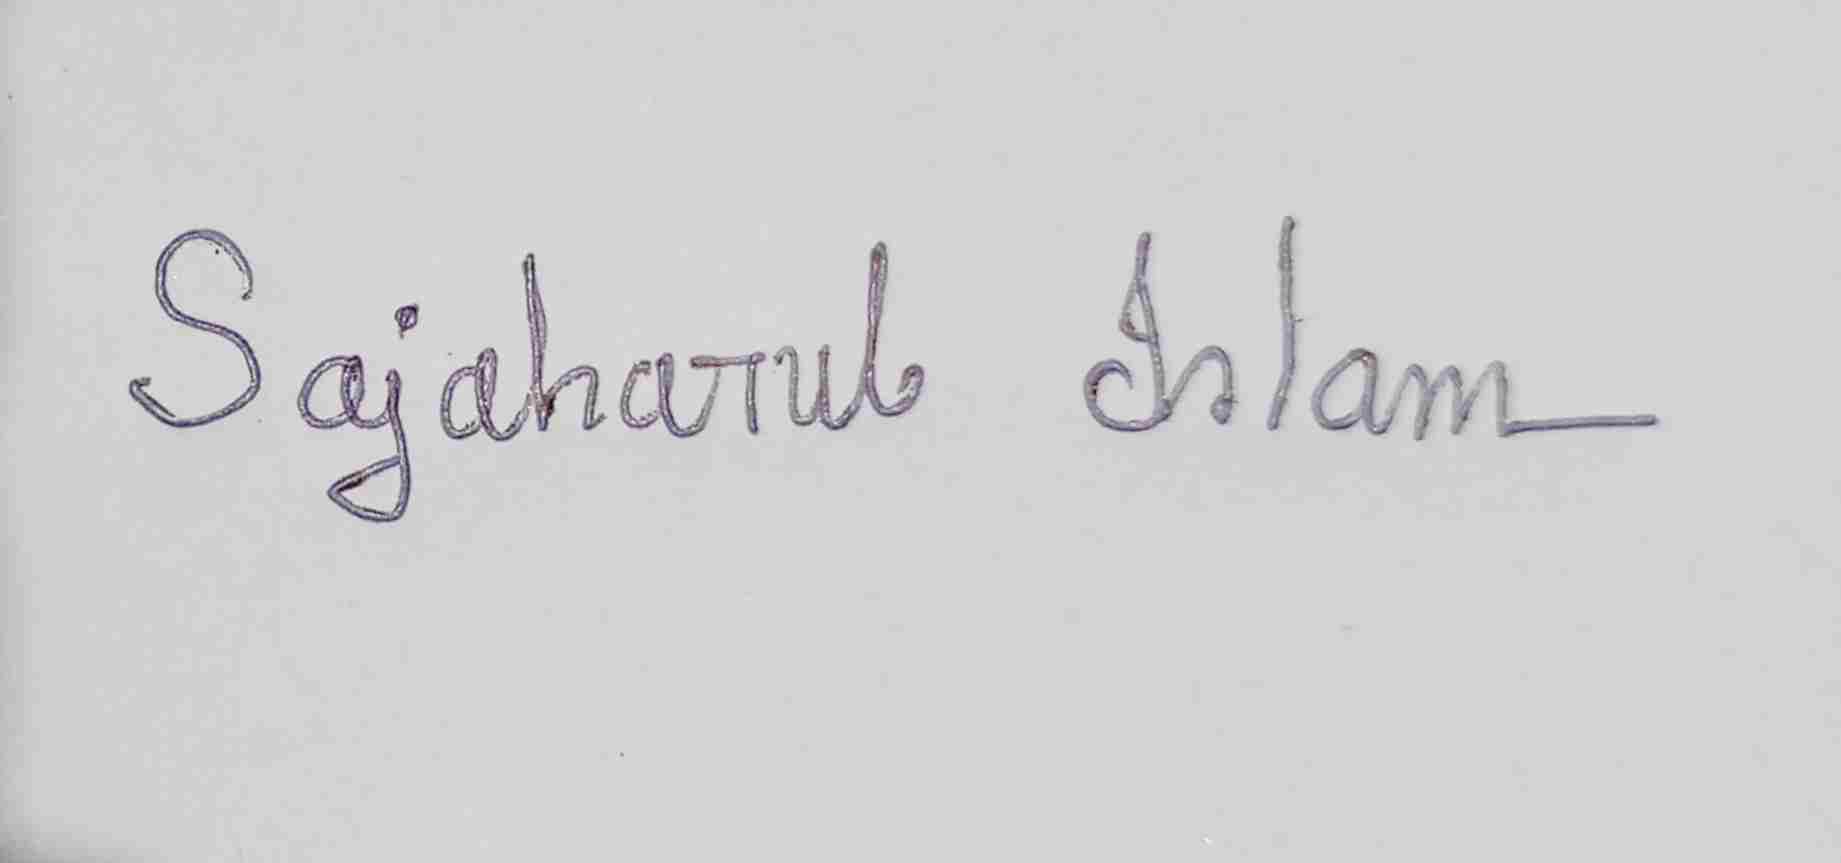 Sajaharul Islam